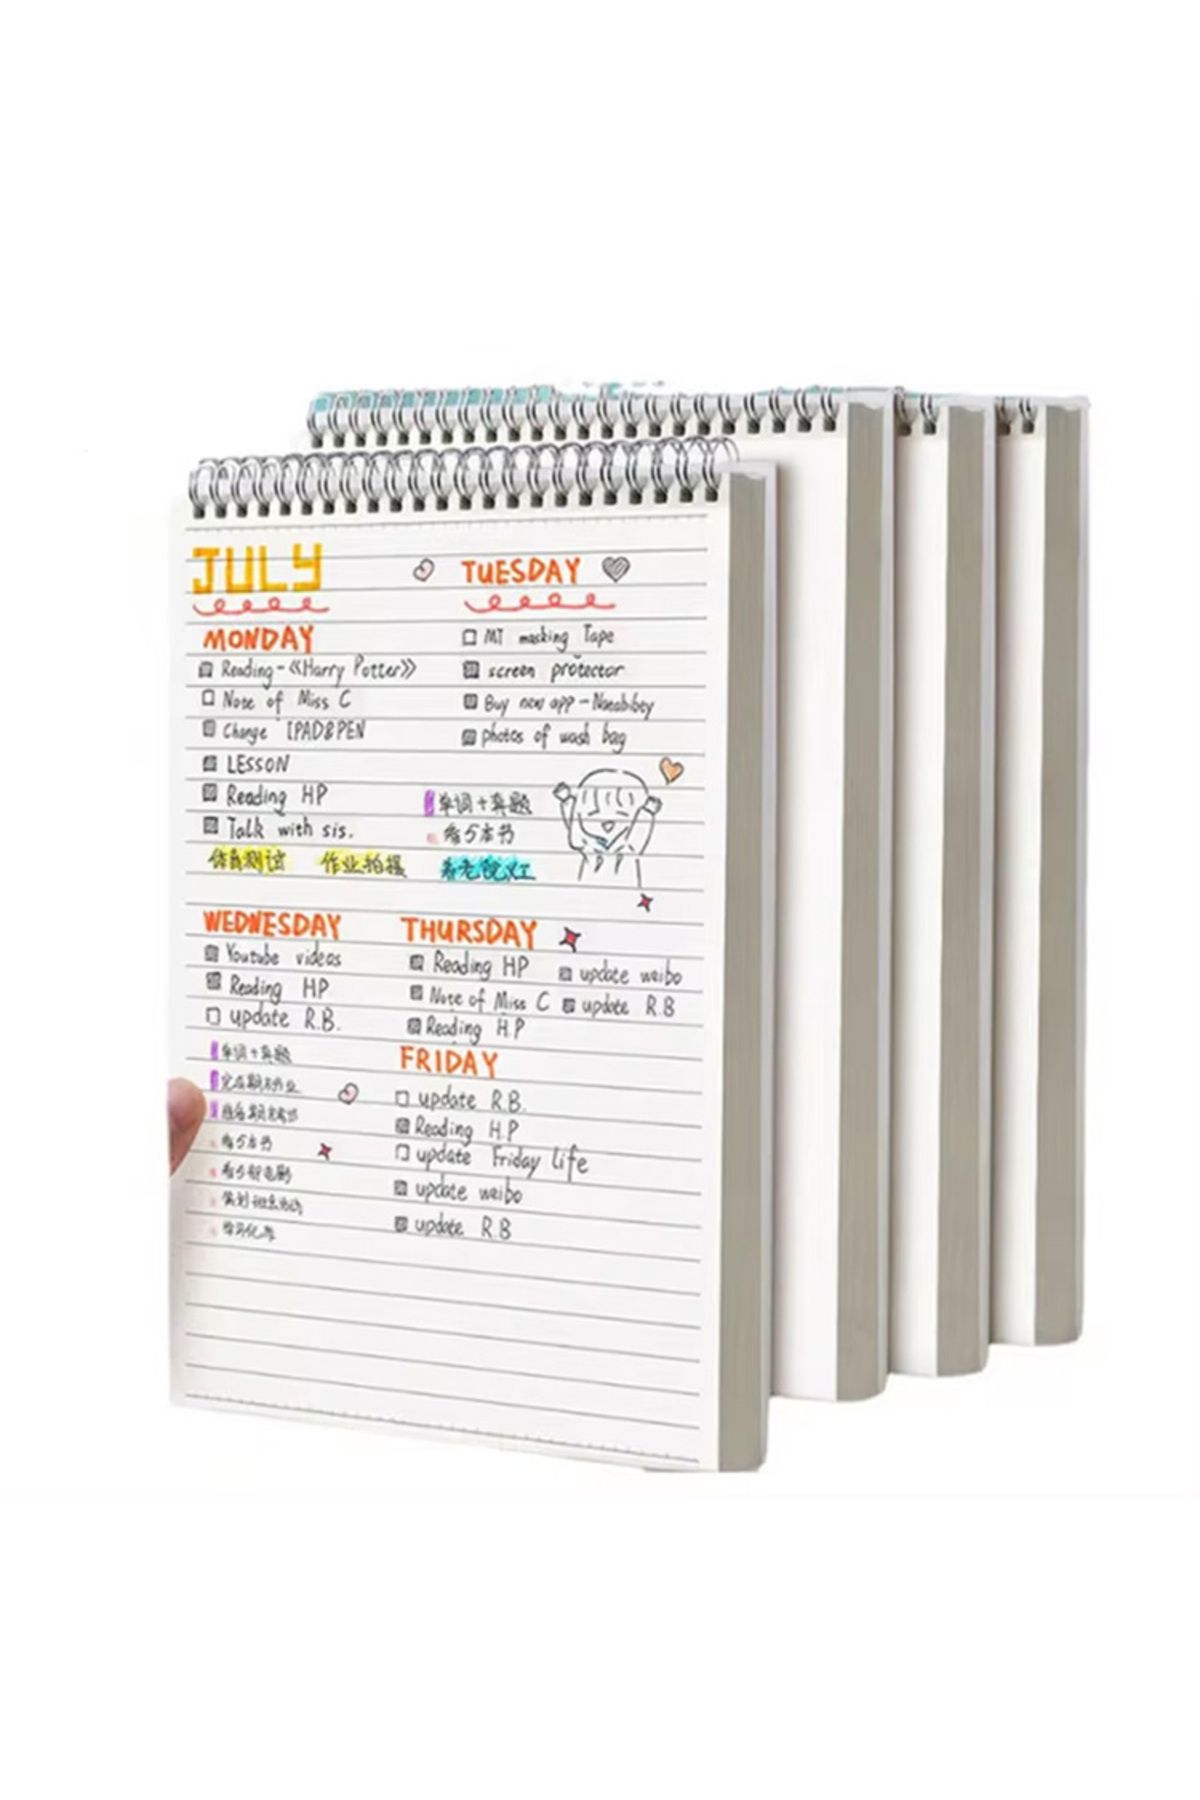 JULY
MONDAY
Reading-《Harry Potter》
Note of Miss C
Change IPAD&PEN
LESSON
Reading HP
Talk with sis.
体育测试 作业拍摄
TUESDAY
MT masking Tape
screen protector
Buy new app-
photos of wash bag
单词+真题
看5本书
看老院义工
WEDNESDAY
Youtube videos
Reading HP
update R.B.
单词+真题
看5本书
看5部电影
THURSDAY
Reading HP
Note of Miss C
Reading H.P
update weibo
update R.B
FRIDAY
update R.B.
Reading H.P
update Friday life
update weibo
update R.B